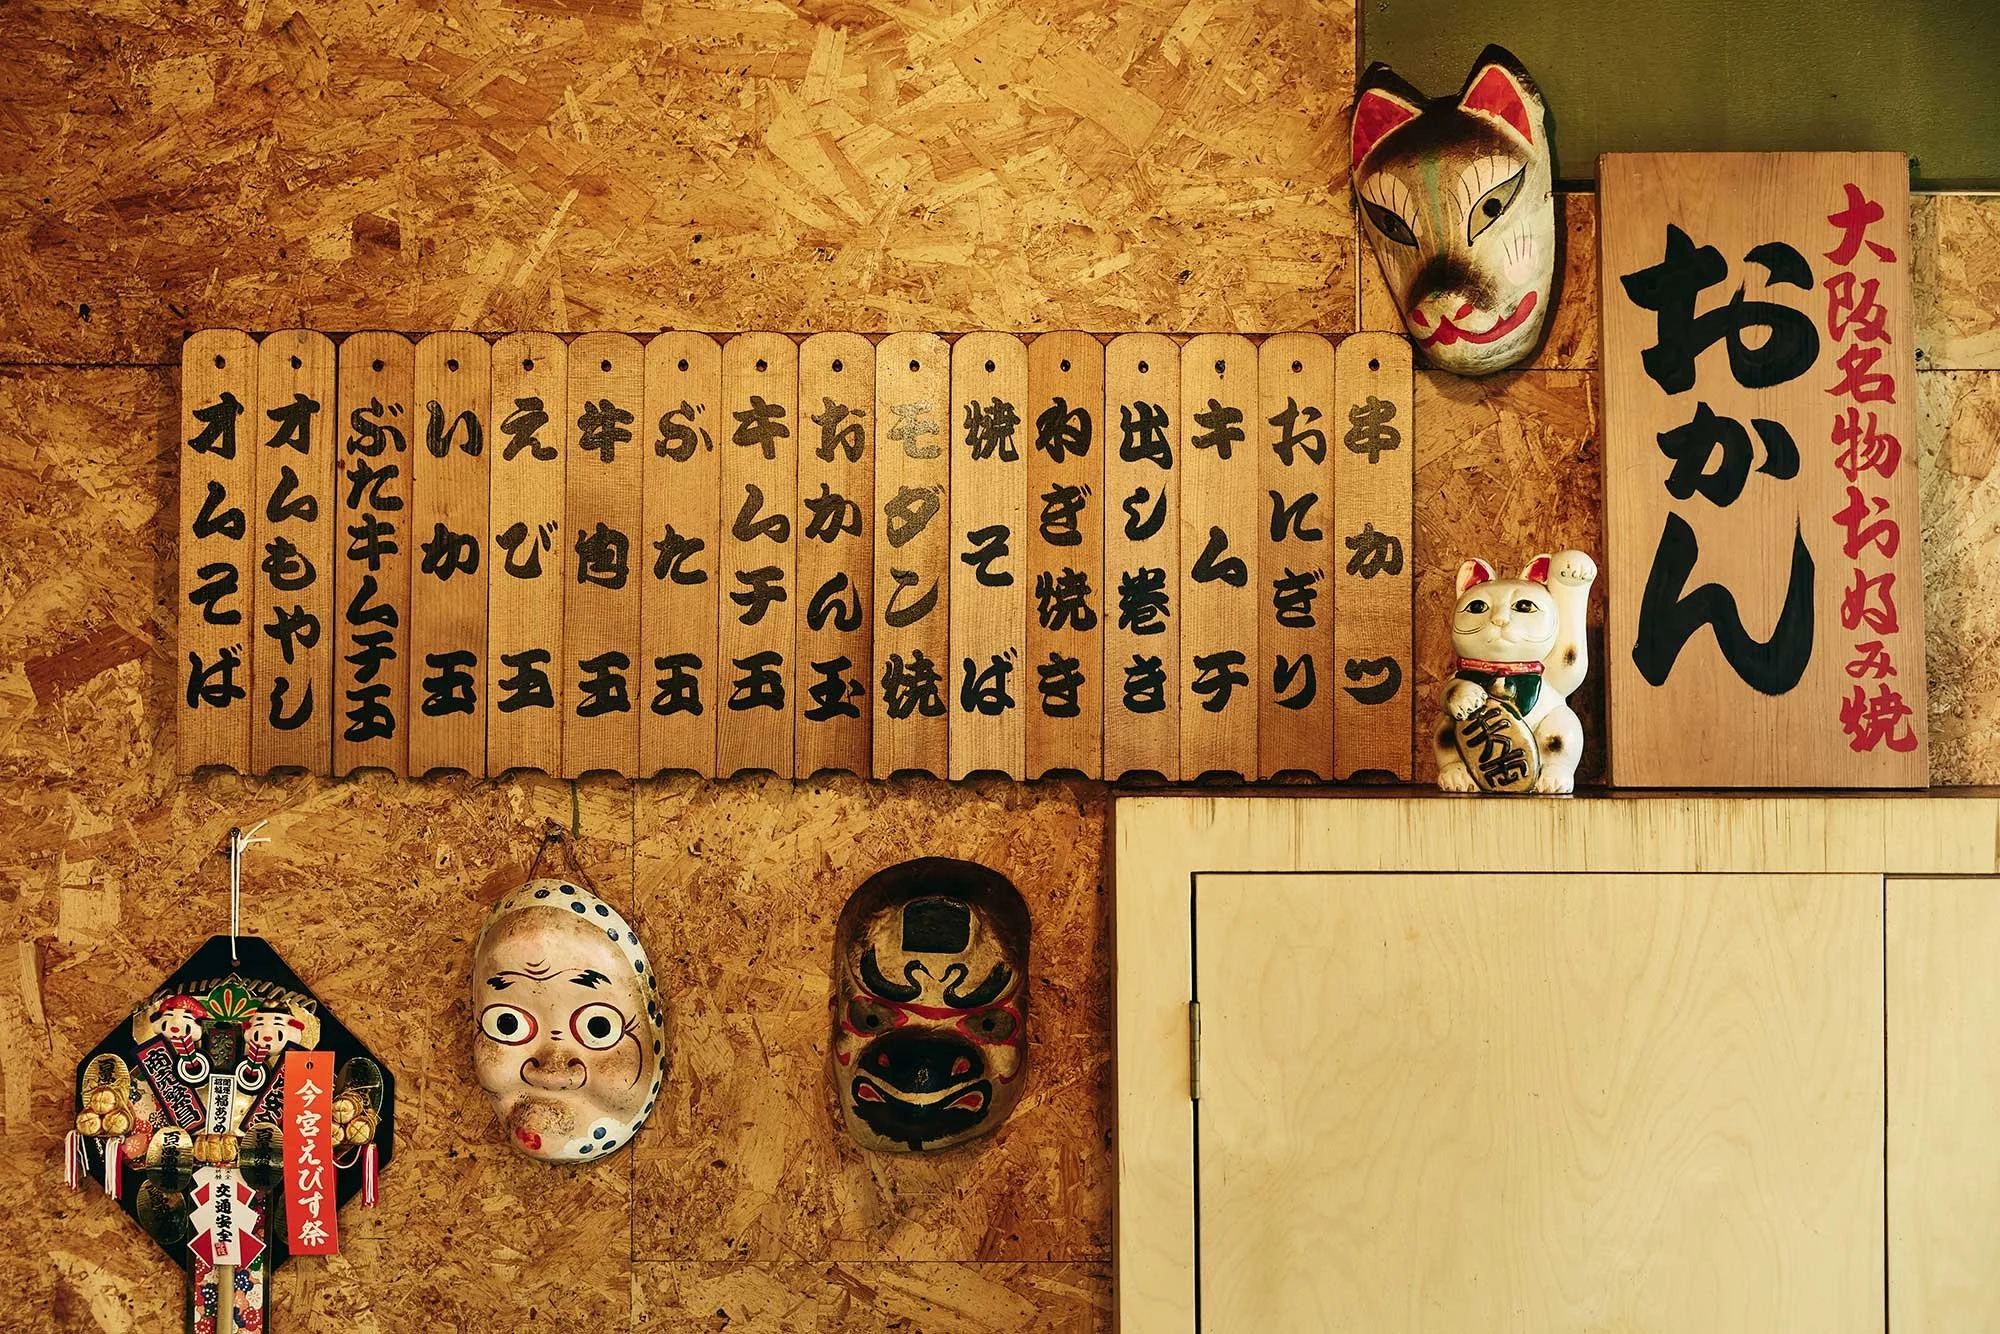 大阪名物お好み焼
おかん
串カツ
おにぎり
キムチ
出シ巻き
ねぎ焼き
焼そば
モダン焼
おかん玉
キムチ玉
ぶた玉
牛肉玉
えび玉
いか玉
ぶたキムチ玉
オムもやし
オムそば
千万両
今宮えびす祭
商売繁昌
福あつめ
交通安全